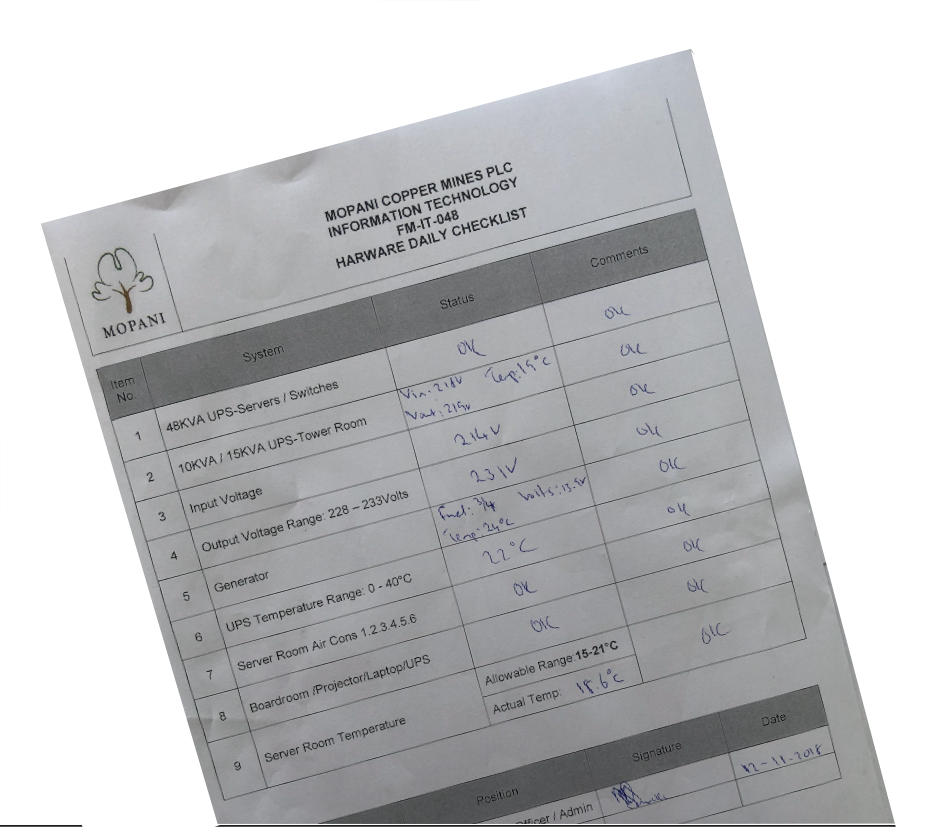 MOPANI COPPER MINES PLC
INFORMATION TECHNOLOGY
FM-IT-048
HARWARE DAILY CHECKLIST
MOPANI
Item No. System Status Comments
1 48KVA UPS-Servers / Switches OK OK
2 10KVA / 15KVA UPS-Tower Room Vin:218V Temp:19°C OK
Vout:219v
3 Input Voltage 214V OK
4 Output Voltage Range: 228 – 233Volts 231V OK
5 Generator Fuel: 3/4 Volts:13.5v OK
Temp:24°C
6 UPS Temperature Range: 0 - 40°C 22°C OK
7 Server Room Air Cons 1.2.3.4.5.6 OK OK
8 Boardroom /Projector/Laptop/UPS OK OK
9 Server Room Temperature Allowable Range:15-21°C OK
Actual Temp: 18.6°C
Position Signature Date
Officer / Admin 12-11-2018